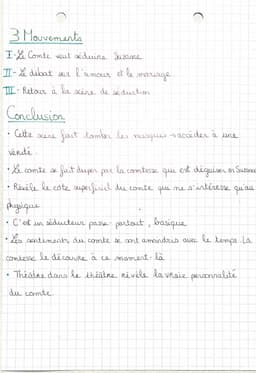 3 Mouvements
I - Le Comte veut séduire Suzanne
II - Le débat sur l'amour et le mariage
III - Retour à la scène de séduction
Conclusion
• Cette scène fait tomber les masques → accéder à une
vérité.
• Le comte se fait duper par la comtesse qui est déguiser en Suzanne
• Révèle le côté superficiel du comte qui ne s'intéresse qu'au
physique
• C'est un séducteur passe-partout, basique
• Les sentiments du comte se sont amoindris avec le temps. La
comtesse le découvre à ce moment-là
• Théâtre dans le théâtre révèle la vraie personnalité
du comte.